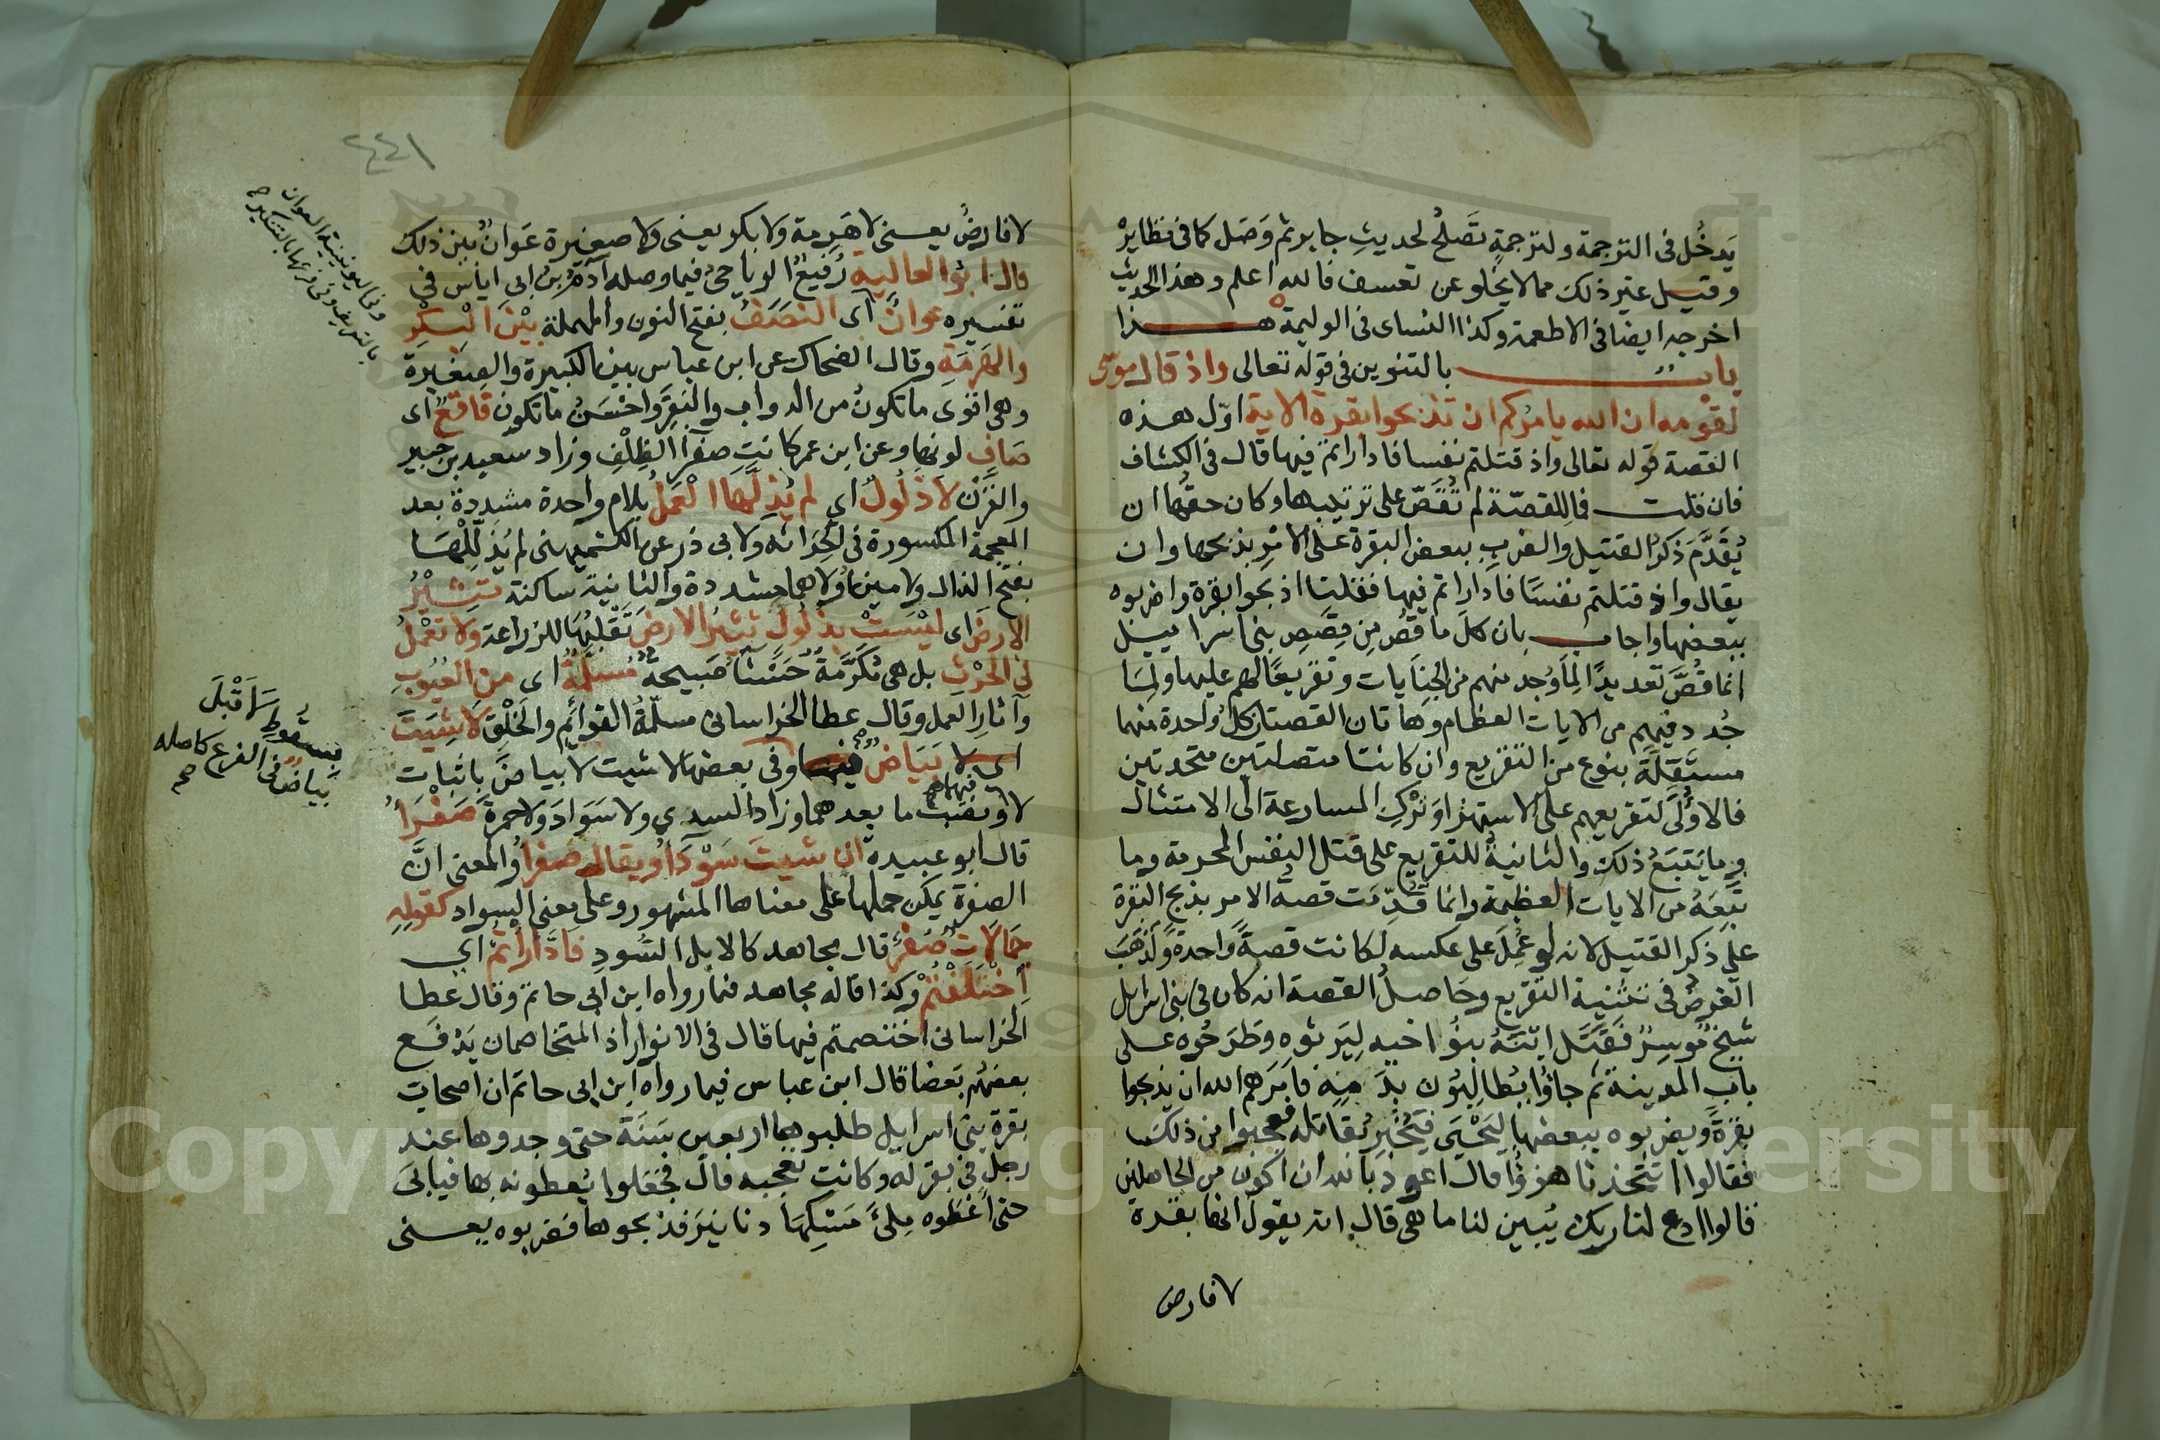 يَدخُل فى الترجمة ولترجمةٍ تَصلحُ لحديثِ جابر ثم وَصَل كما فى نظايرْ
وقيل غير ذلك مما لا يخلو عن تعسف فالله اعلم وهذا الحديث
اخرجه ايضا فى الاطعمة وكذا النساى فى الوليمة هـــذا
باب بالتنوين فى قوله تعالى واذ قال موسى
لقومه ان الله يامركم ان تذبحوا بقرة الاية اوّل هذه
القصة قوله تعالى واذ قتلتم نفسا فاداراتم فيها قال فى الكشاف
فان قلت فما للقصّة لم تُقَصّ على ترتيبها وكان حقها ان
يُقَدَّمَ ذكرُ القتيل والضربِ ببعض البقرة على الامر بذبحها وان
يقال واذ قتلتم نفسًا فاداراتم فيها فقلنا اذبحوا بقرة واضربوه
ببعضها واجاب بان كل ما قصُ مِن قِصَصِ بنى اسراييل
انما قُصَّ تعديدًا لِمَا وُجد منهم من الجنايات وتقريعًا لهم عليها ولِمَا
جُدد فيهم من الايات العظام وهاتان القصتان كل واحدة منهما
مستقلة بنوع من التقريع وان كانتا متصلتين متحدتين
فالاُولَى لتقريعهم على الاستهزا وتركِ المسارعة الى الامتثال
وما يَتبَعُ ذلك والثانيةُ للتقريع على قتل النفس المحرمة وما
تبِعَهُ من الايات العظيمة وانما قُدّمَت قصةُ الامر بذبح البقرة
على ذكر القتيل لانه لو عُمِل على عكسه لكانت قصةً واحدةً ولَذهَبَ
الغرضُ فى تثنية التقريع وحَاصلُ القصة انه كان فى بنى اسرايل
شيخٌ مُوسِرٌ فقَتَل ابنَهُ بنوُ اخيه لِيَرِثوه وطَرَحُوه على
باب المدينة ثم جاؤا يُطالِبُون بدَمِه فامَرَهم الله ان يذبحوا
بقرةً ويضربوه ببعضها ليَحْيَى فيُخْبِرُ بقاتله فعجبوا من ذلك
فقالوا اتتخذنا هزؤًا قال اعوذ بالله ان اكون من الجاهلين
قالوا ادع لنا ربك يُبين لنا ما هى قال انه يقول انها بقرة
لا فارض
٤٤١
لا فارضُ يعنى لا هَرِمة ولا بكر يعنى ولا صغيرة عَوانٌ بين ذلك
قال ابوُ العالية رُفيعٌ الرياحىُ فيما وصله آدمُ بنُ ابى اياس فى
تفسيره عوانٌ اى النصَفُ بفتح النون والمهملة بيْنَ البِكْرِ
والهَرِمَةِ وقال الضحاك عن ابن عباس بين الكبيرة والصغيرة
وهى اقوى ما تكونُ من الدواب والبقرِ واحسَنُ ما تكون فاقعٌ اى
صَافٍ لونها وعن ابن عمر كانت صفرآ الظِلْفِ وزاد سعيد بن جبير
والقَرْن لا ذلُولٌ اى لم يُذِلَّها العَمَلُ بلام واحدة مشددة بعد
المعجمة المكسورة فى لُحرَائه ولابى ذر عن الكشميهنى لم يُذَلِّلْهَا
بفتح الذال ولامين اُولاهما مشددة والثانية ساكنة تُثيْرُ
الارض اى ليْسَتْ بذلُولٍ تثيرُ الارضَ تَقْلِبُهَا للزراعة ولا تعْملُ
فى الحَرْث بل هى مُكَرَّمَةٌ حَسْنَا صَبيحة مُسلَّمةٌ اى من العُيُوبِ
وآثارِ العَمل وقال عطا الخراسانى مسلَّمةُ القوائِم والخَلْقِ لاشيَتَ
اى لا بَيَاضٌ فيها وفى بعضها لاشيت لا بياضَ باثبات
لا ونصب ما بعدهما وزاد السدي ولا سَوَادَ ولا حمرةَ صَفْرَاُ
قال ابو عبيدة ان شيتَ سَوْدَاُ ويقال صفراُ والمعنى انَّ
الصفرة يمكن حملها على معناها المشهور وعلى معنى السواد كقولهِ
جمَالاتٌ صُفْرٌ قال مجاهد كالابل السُودِ فادَّاراْتمُ اى
اختَلَفْتُمْ وكذا قاله مجاهد فيما رواه ابن ابى حاتم وقال عطا
الخراسانى اختصمتم فيها قال فى الانوار اذ المتخاصمان يَدْفَع
بعضهُم بعضا قال ابن عباس فيما رواه ابن ابى حاتم ان اصحاب
بقرة بنى اسرايل طلبوها اربعين سَنَة حتى وجدوها عند
رجل فى بقر له وكانت تعجبه قال فجعَلوا يُعطونه بها فيابَىَ
حتى اَعْطَوه مِلئَ مَسْكِهَا دنانيرَ فذبحوها فضربوه يعنى
وفى اليونينية العوان
بالتعريف وفى فرعها بالتنكير صح
فيها صح
بسقوط لَا قَبْلَ
بَيَاضٌ فى الفرع كاصله
صح
Copyright © King Saud University